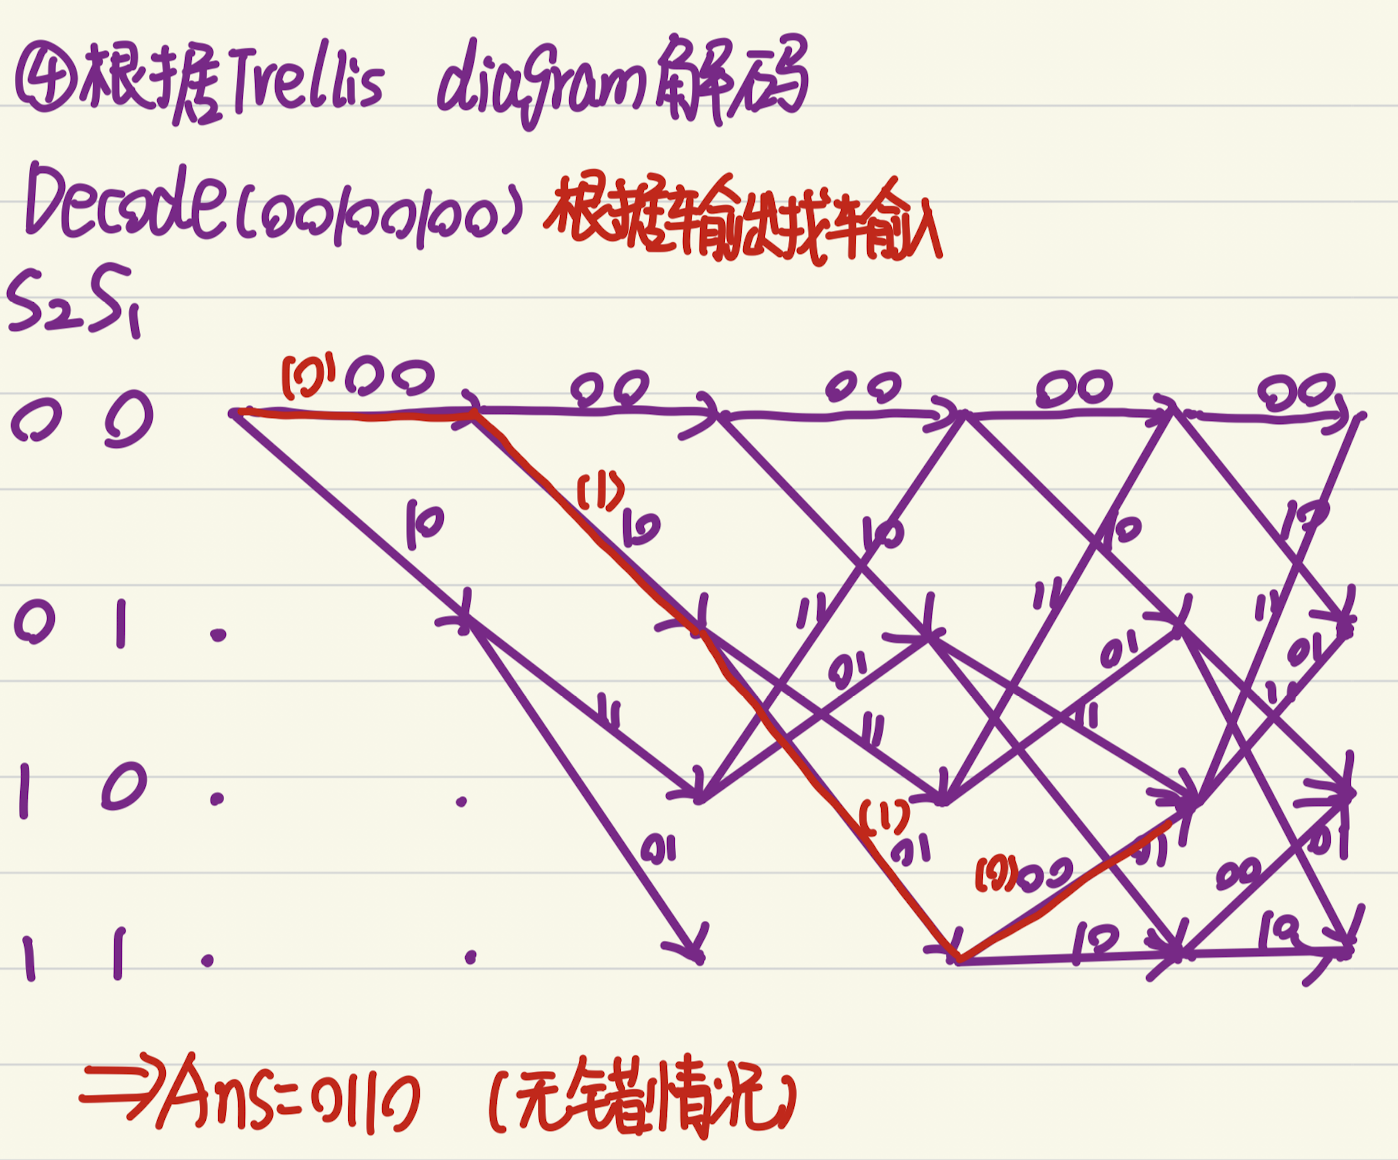 ④根据Trellis diagram解码
Decode(00100100) 根据输出找输入
S₂S₁
00 (0) 00 00 00 00 00
10 (1) 10 10 10 10
01 11 01 11 01 11 01
11 11 11 11
10
01 (1) 01 (0) 00 01 00 01
11 10 10
⇒Ans=0110 (无错情况)